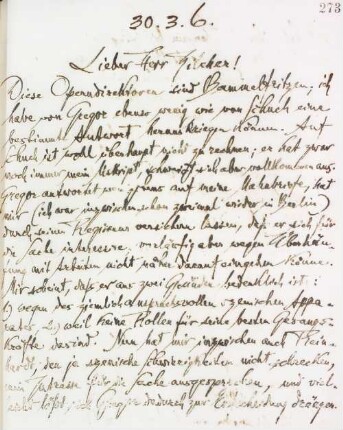 273
30. 3. 6.
Lieber Herr Fischer!
Diese Operndirektoren sind Bammelfritzen; ich
habe von Gregor ebenso wenig wie von Schuch eine
bestimmte Antwort herauskriegen können. Auf
Schuch ist wohl überhaupt nicht zu rechnen; er hat zwar
noch immer mein Manuskript, schweigt sich aber vollkommen aus.
Gregor antwortet mir zwar auf meine Mahnbriefe, hat
mir (ich war inzwischen schon zweimal wieder in Berlin)
durch seinen Regisseur versichern lassen, daß er sich für
die Sache interessire, vorläufig aber wegen Überhäu-
fung mit Arbeiten nicht näher darauf eingehen könne.
Mir scheint, daß er aus zwei Gründen bedenklich ist:
1) wegen des ziemlich anspruchsvollen szenischen Appa-
rates, 2) weil keine Rollen für seine besten Gesangs-
kräfte da sind. Nun hat mir inzwischen auch Rein-
hardt, den ja szenische Schwierigkeiten nicht schrecken,
sein Interesse für die Sache ausgesprochen, und viel-
leicht läßt sich Gregor dadurch zur Entscheidung drängen.